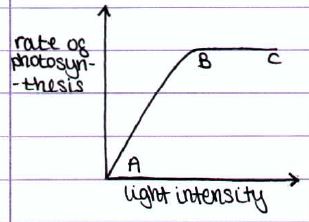 rate of
photosyn-
-thesis
B
C
A
light intensity